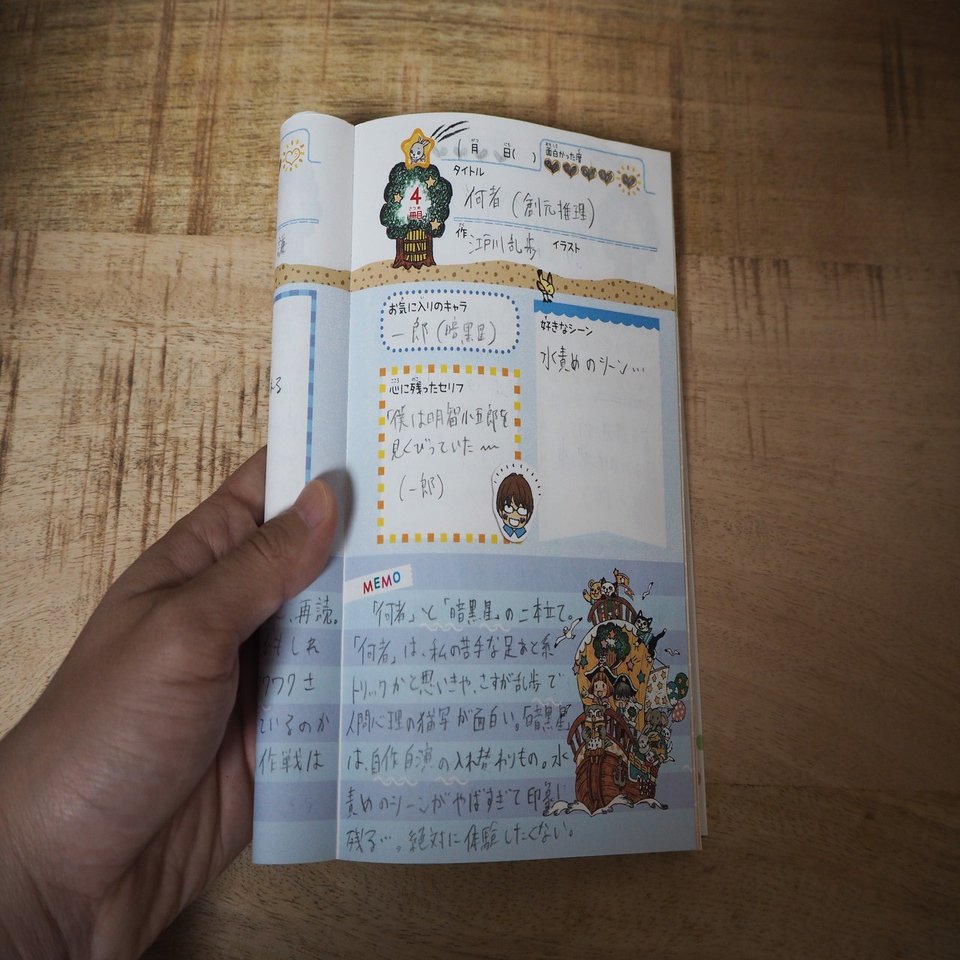 月 日( )
がつ にち
面白かった度
タイトル
何者 (創元推理)
4
さつめ
冊目
作 江戸川乱歩 イラスト
お気に入りのキャラ
一郎(暗黒星)
好きなシーン
水責めのシーン…
こころ のこ
心に残ったセリフ
「僕は明智小五郎を
見くびっていた〜
(一郎)
MEMO
「何者」と「暗黒星」の二本立て。
「何者」は、私の苦手な足あと系
トリックかと思いきや、さすが乱歩で
人間心理の描写が面白い。「暗黒星」
は、自作自演の入れ替わりもの。水
責めのシーンがやばすぎて印象に
残る…。絶対に体験したくない。
、再読。
もしれ
ワクワクさ
ているのか
作戦は